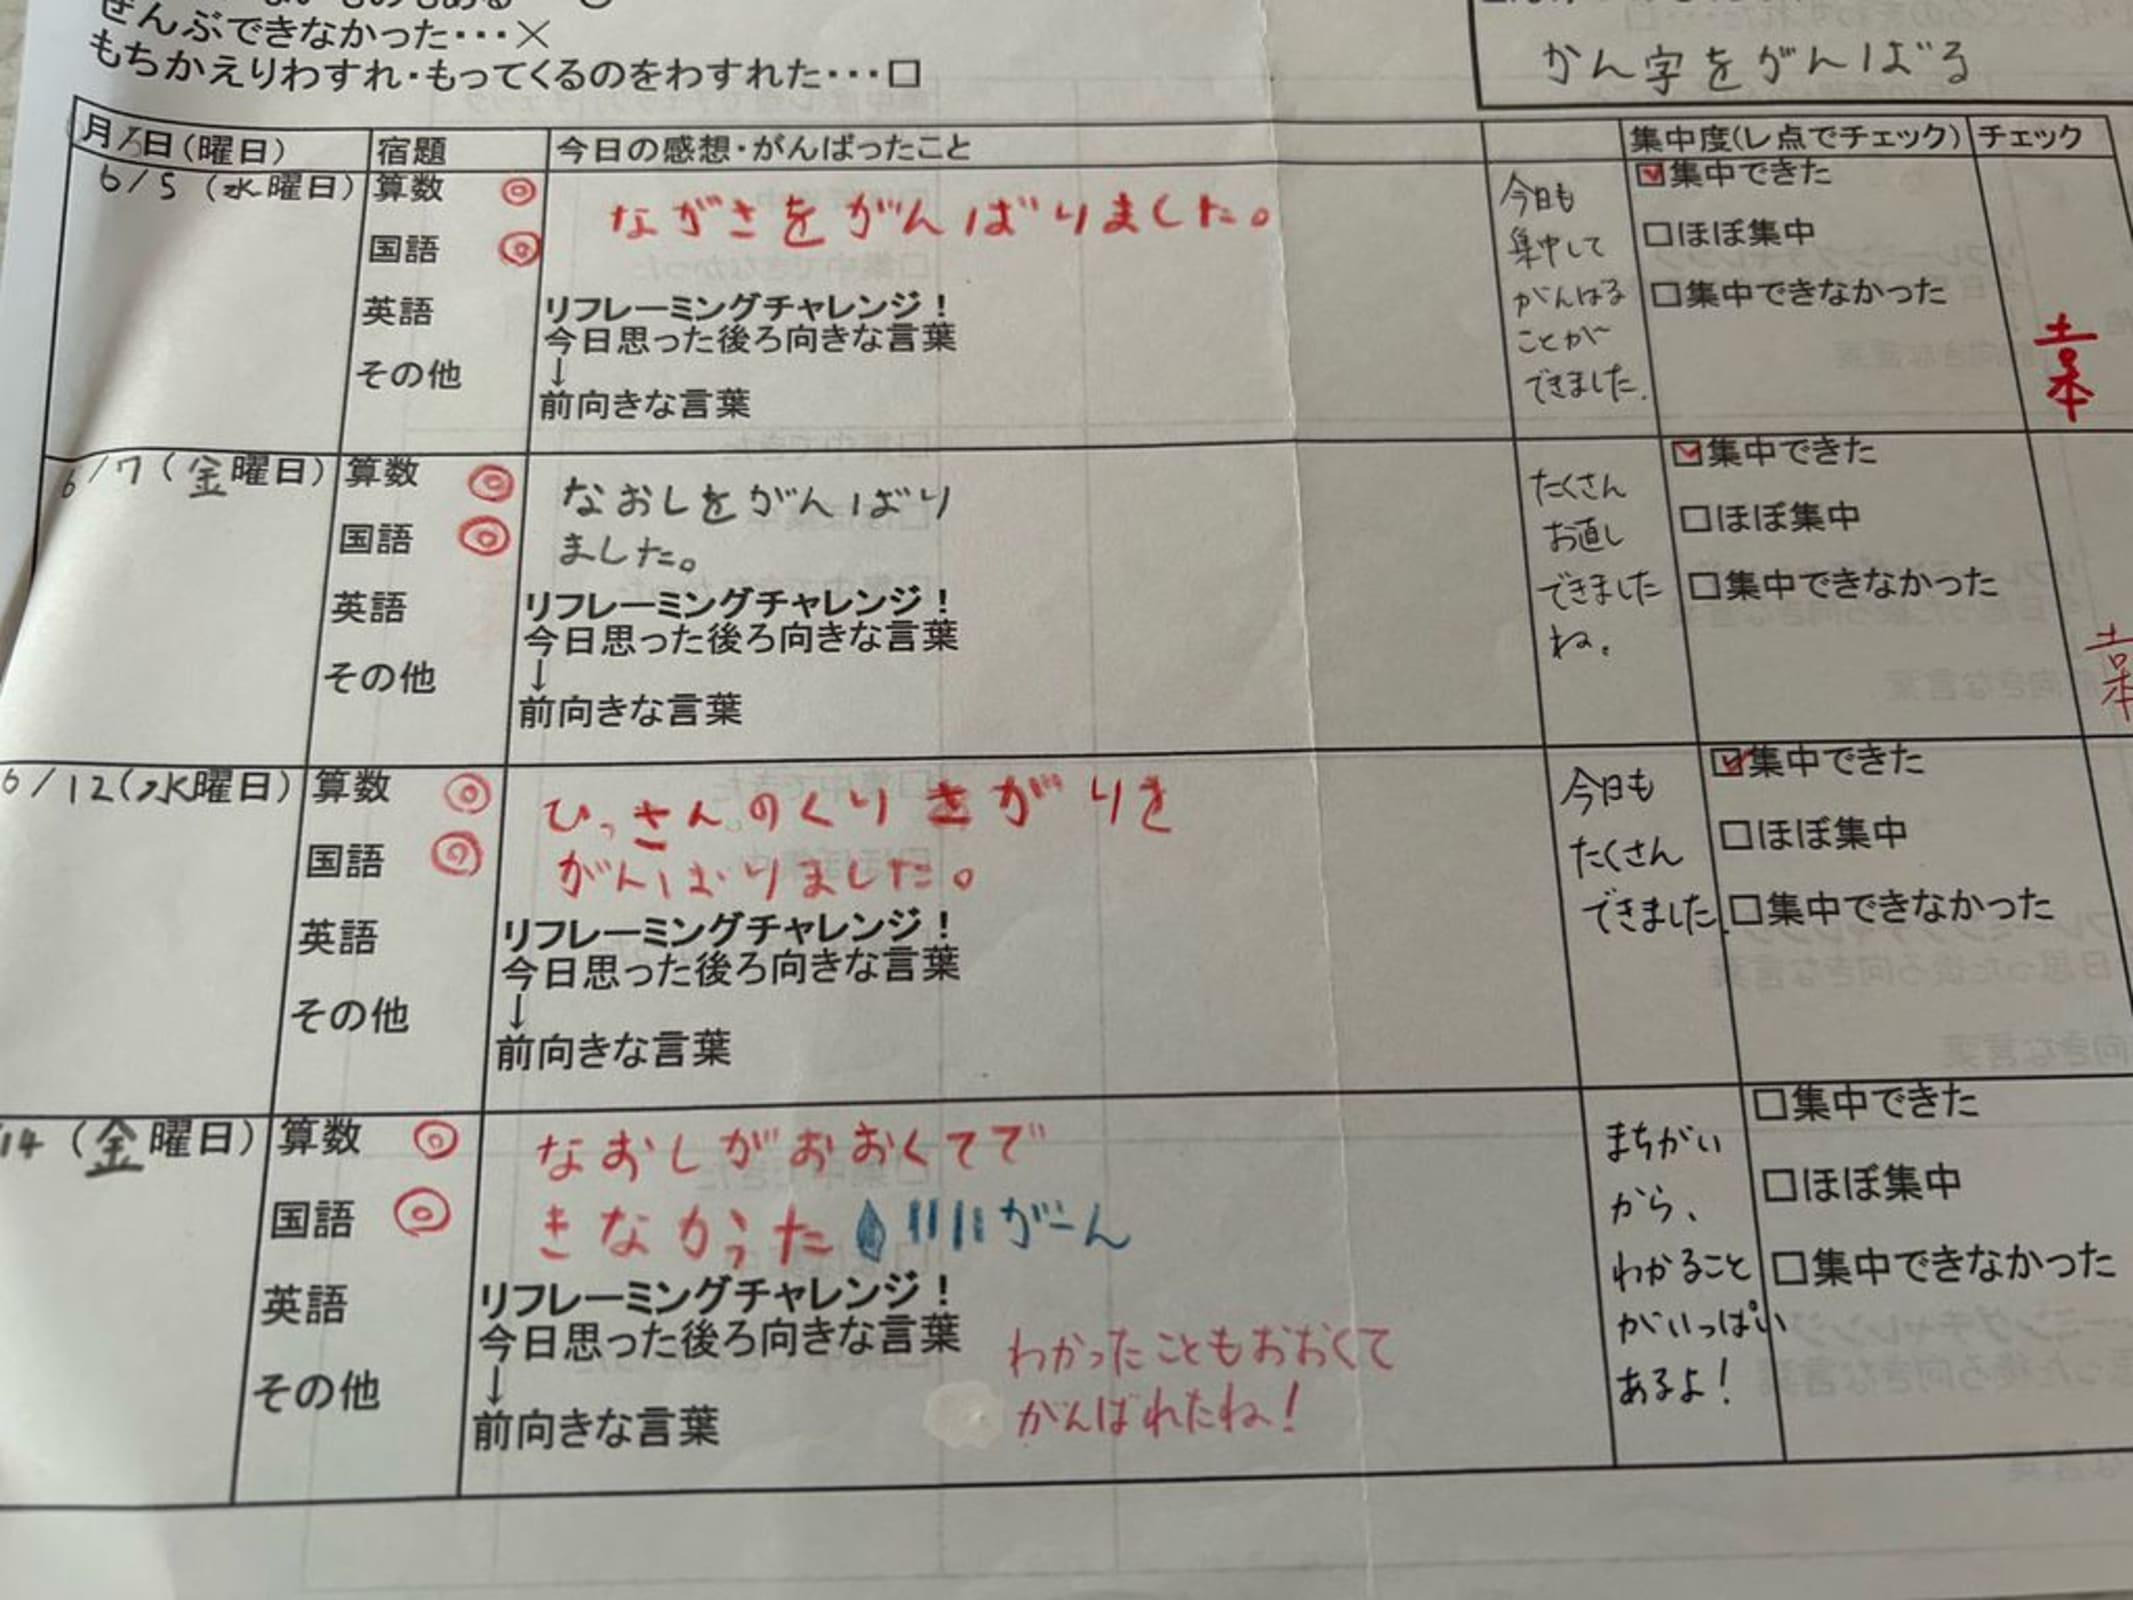 ぜんぶできなかった・・・×
もちかえりわすれ・もってくるのをわすれた・・・□
かん字をがんばる
月/日(曜日)
宿題
今日の感想・がんばったこと
集中度(レ点でチェック)
チェック
6/5(水曜日)
算数 ◎
国語 ◎
英語
その他
ながさをがんばりました。
リフレーミングチャレンジ！
今日思った後ろ向きな言葉
↓
前向きな言葉
今日も
集中して
がんばる
ことが
できました.
☑集中できた
□ほぼ集中
□集中できなかった
6/7(金曜日)
算数 ◎
国語 ◎
英語
その他
なおしをがんばり
ました。
リフレーミングチャレンジ！
今日思った後ろ向きな言葉
↓
前向きな言葉
たくさん
お直し
できました
ね。
☑集中できた
□ほぼ集中
□集中できなかった
6/12(水曜日)
算数 ◎
国語 ◎
英語
その他
ひっさんのくりさがりを
がんばりました。
リフレーミングチャレンジ！
今日思った後ろ向きな言葉
↓
前向きな言葉
今日も
たくさん
できました.
☑集中できた
□ほぼ集中
□集中できなかった
/14(金曜日)
算数 ◎
国語 ◎
英語
その他
なおしがおおくてで
きなかった がーん
リフレーミングチャレンジ！
今日思った後ろ向きな言葉
↓
前向きな言葉
わかったこともおおくて
がんばれたね！
まちがい
から、
わかること
がいっぱい
あるよ！
□集中できた
□ほぼ集中
□集中できなかった